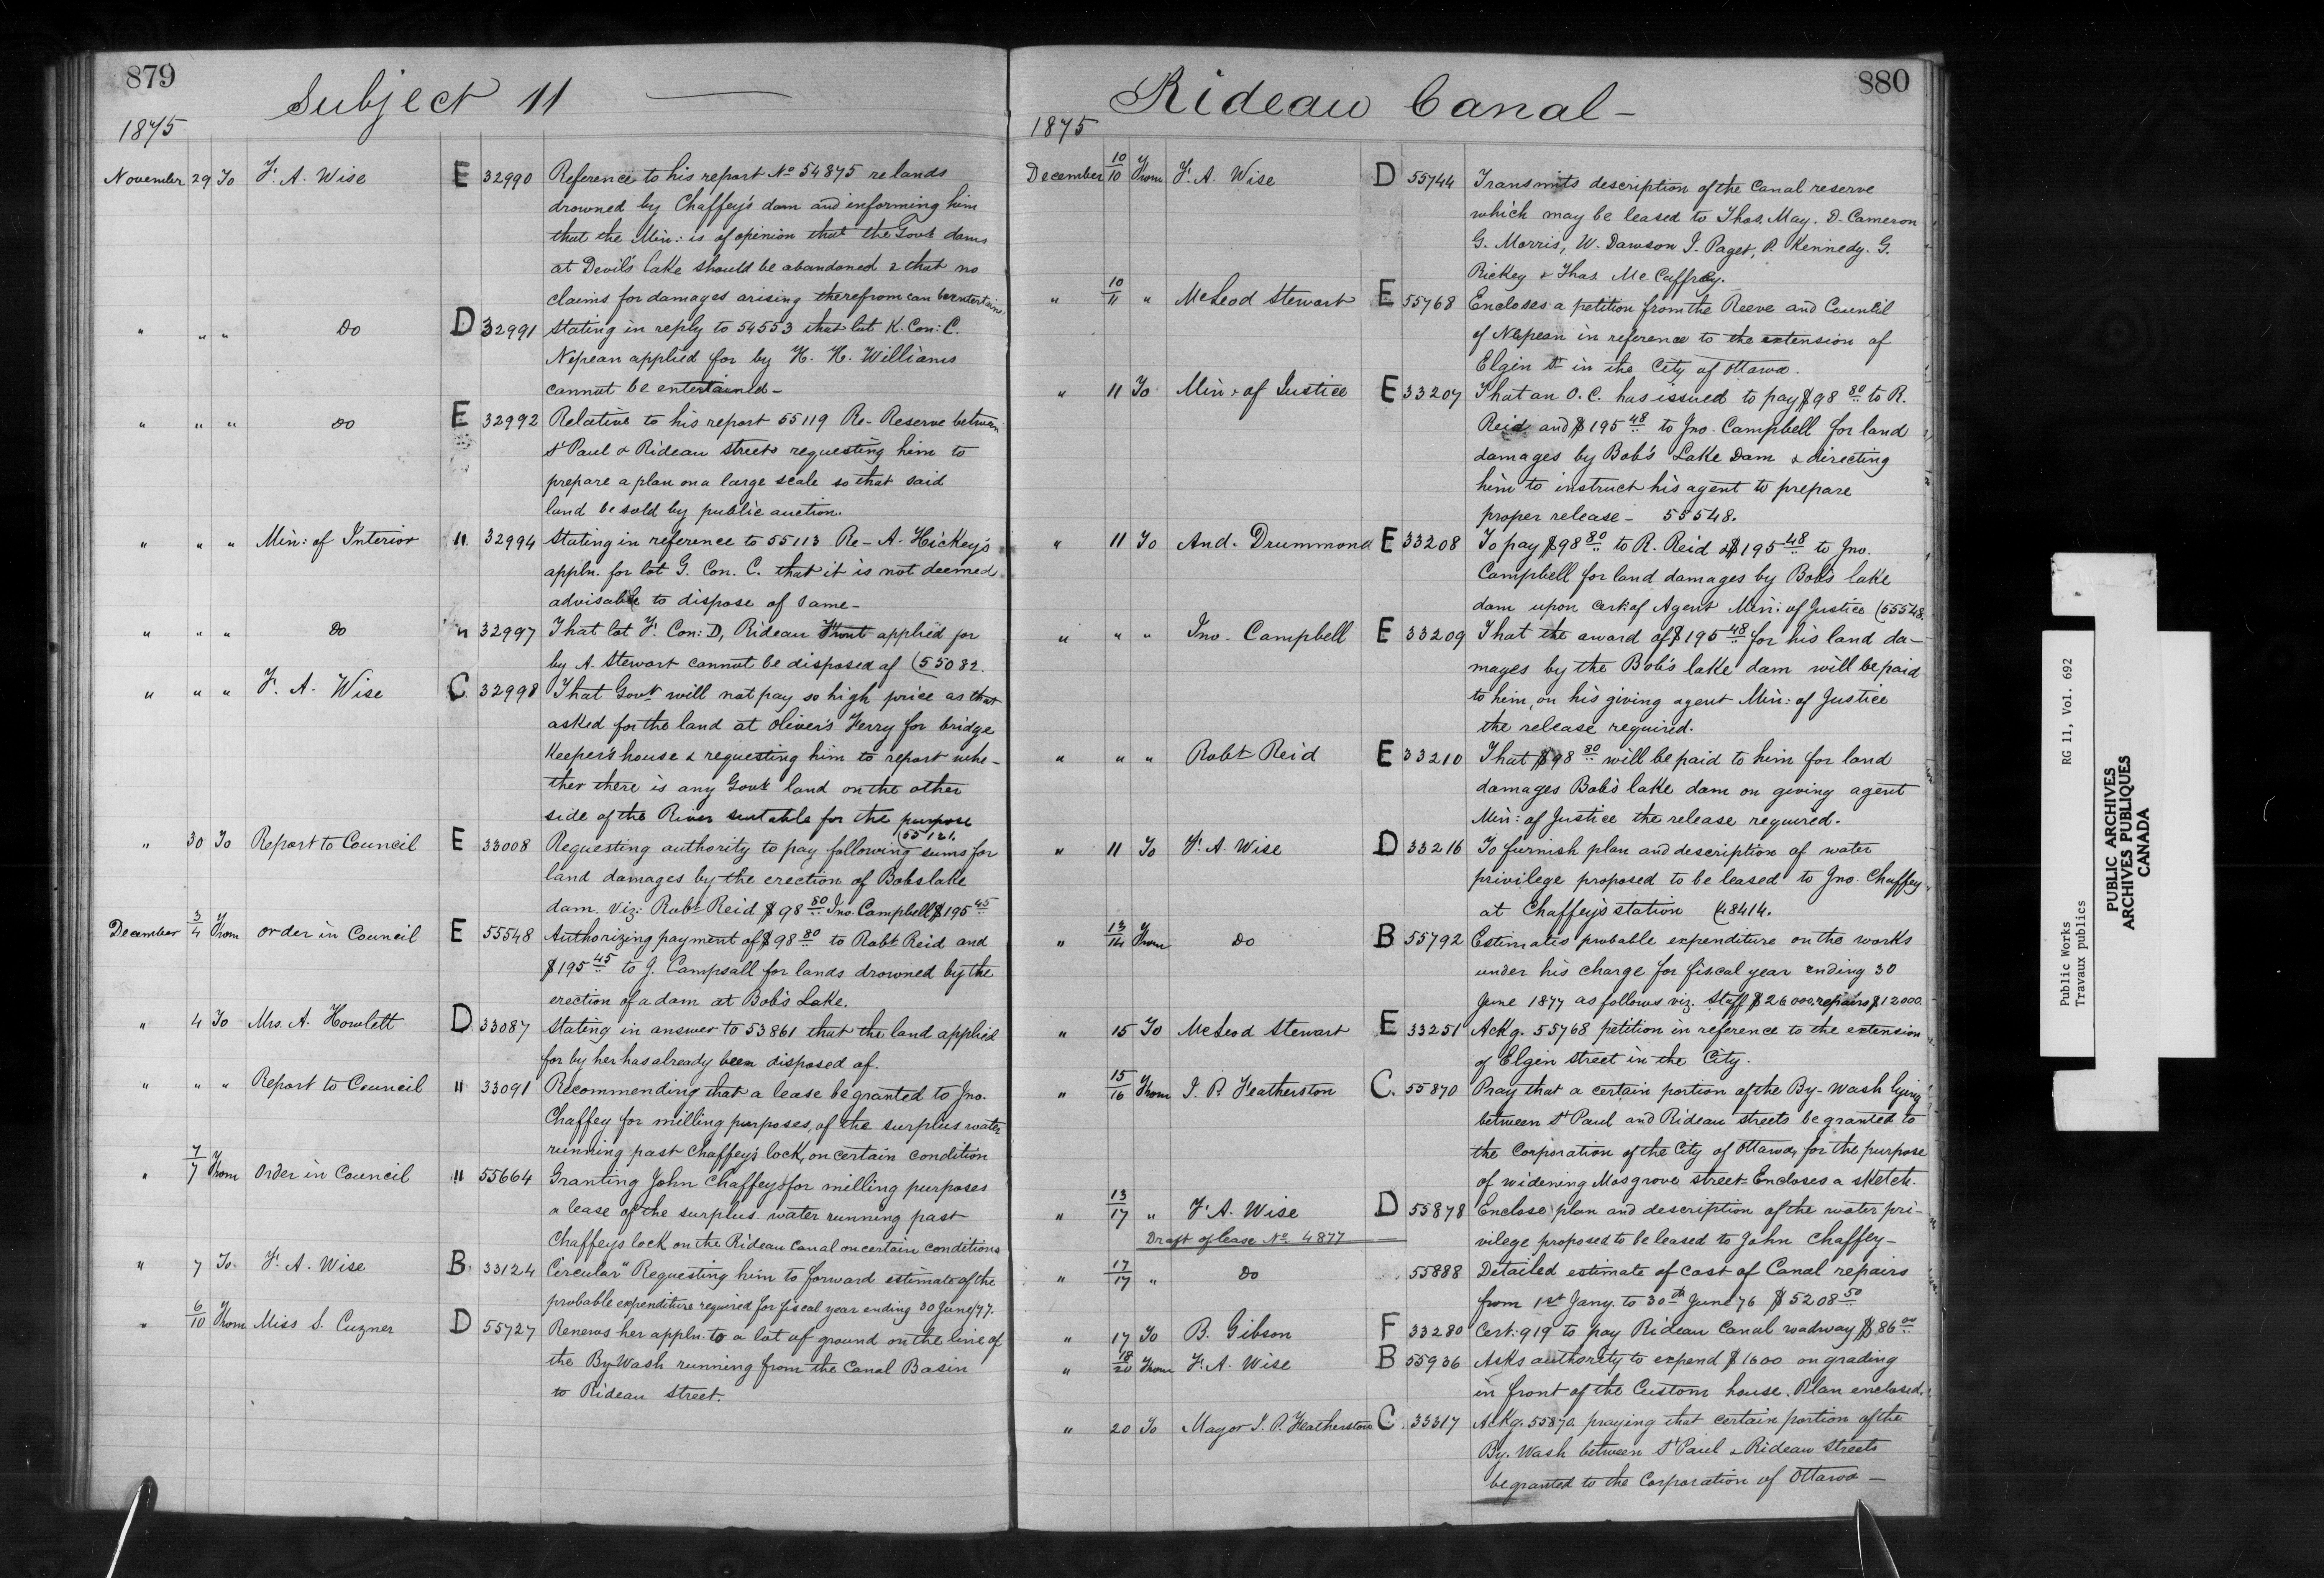 879
Subject 11 —
1875
November 29 To F. A. Wise E 32990 Reference to his report No 54875 re lands
drowned by Chaffey's dam and informing him
that the Min: is of opinion that the Govt dams
at Devil's lake should be abandoned & that no
claims for damages arising therefrom can be entertain.
" " " Do D 32991 Stating in reply to 54553 that lot K. Con: C.
Nepean applied for by H. H. Williams
cannot be entertained -
" " " Do E 32992 Relative to his report 55119 Re- Reserve between
St Paul & Rideau streets requesting him to
prepare a plan on a large scale so that said
land be sold by public auction.
" " " Min: of Interior " 32994 Stating in reference to 55113 Re - A. Hickey's
appln. for lot G. Con. C. that it is not deemed
advisable to dispose of same -
" " " Do " 32997 That lot F. Con: D, Rideau Front applied for
by A. Stewart cannot be disposed of (55082.
" " " F. A. Wise C 32998 That Govt will not pay so high price as that
asked for the land at Oliver's Ferry for bridge
Keeper's house & requesting him to report whe-
ther there is any Govt land on the other
side of the River suitable for the purpose
(55121.
" 30 To Report to Council E 33008 Requesting authority to pay following sums for
land damages by the erection of Bobs lake
dam. viz: Robt Reid $98 80 Jno. Campbell $195 45
December 3/4 From Order in Council E 55548 Authorizing payment of $98 80 to Robt Reid and
$195 45 to J. Campsall for lands drowned by the
erection of a dam at Bob's Lake.
" 4 To Mrs. A. Howlett D 33087 Stating in answer to 53861 that the land applied
for by her has already been disposed of.
" " " Report to Council " 33091 Recommending that a lease be granted to Jno.
Chaffey for milling purposes, of the surplus water
running past Chaffey's lock, on certain condition
" 7/7 From Order in Council " 55664 Granting John Chaffey for milling purposes
a lease of the surplus water running past
Chaffeys lock on the Rideau Canal on certain conditions
" 7 To F. A. Wise B. 33124 Circular" Requesting him to forward estimate of the
probable expenditure required for fiscal year ending 30 June/77.
" 6/10 From Miss S. Cuzner D 55727 Renews her appln. to a lot of ground on the line of
the By Wash running from the Canal Basin
to Rideau street.
880
Rideau Canal -
1875
December 10/10 From F. A. Wise D 55744 Transmits description of the Canal reserve
which may be leased to Thos. May. D. Cameron
G. Morris, W. Dawson J. Paget, P. Kennedy. G.
Rickey & Thos. McCaffrey.
" 10/11 " McLeod Stewart E 55768 Encloses a petition from the Reeve and Council
of Nepean in reference to the extension of
Elgin St in the City of Ottawa.
" 11 To Min: of Justice E 33207 That an O. C. has issued to pay $98 80 to R.
Reid and $195 48 to Jno. Campbell for land
damages by Bob's Lake Dam & directing
him to instruct his agent to prepare
proper release - 55548.
" 11 To And. Drummond E 33208 To pay $98 80 to R. Reid & $195 48 to Jno.
Campbell for land damages by Bob's lake
dam upon cert: of Agent Min: of Justice (55548.
" " " Jno. Campbell E 33209 That the award of $195 48 for his land da-
mages by the Bob's lake dam will be paid
to him, on his giving agent Min: of Justice
the release required.
" " " Robt Reid E 33210 That $98 80 will be paid to him for land
damages Bob's lake dam on giving agent
Min: of Justice the release required.
" 11 To F. A. Wise D 33216 To furnish plan and description of water
privilege proposed to be leased to Jno. Chaffey
at Chaffey's station (48414.
" 13/14 From Do B 55792 Estimates probable expenditure on the works
under his charge for fiscal year ending 30
June 1877 as follows viz. Staff $26000. repairs $12000.
" 15 To McLeod Stewart E 33251 Ackg. 55768 petition in reference to the extension
of Elgin Street in the City.
" 15/16 From J. P. Featherston C. 55870 Pray that a certain portion of the By-Wash lying
between St Paul and Rideau streets be granted to
the Corporation of the City of Ottawa, for the purpose
of widening Mosgrove street. Encloses a sketch.
" 13/17 " F. A. Wise D 55878 Enclose plan and description of the water pri-
Draft of lease No. 4877
vilege proposes to be leased to John Chaffey -
" 17/17 " Do 55888 Detailed estimate of cost of Canal repairs
from 1st Jany. to 30th June 76 $5208 50
" 17 To B. Gibson F 33280 Cert: 919 to pay Rideau Canal roadway $86 00
" 18/20 From F. A. Wise B 55936 Asks authority to expend $1600 on grading
in front of the Custom house. Plan enclosed.
" 20 To Mayor J. P. Featherston C. 33317 Ackg. 55870. praying that certain portion of the
By. Wash between St Paul & Rideau Streets
be granted to the Corporation of Ottawa -
Public Works RG 11, Vol. 692
Travaux publics
PUBLIC ARCHIVES
ARCHIVES PUBLIQUES
CANADA